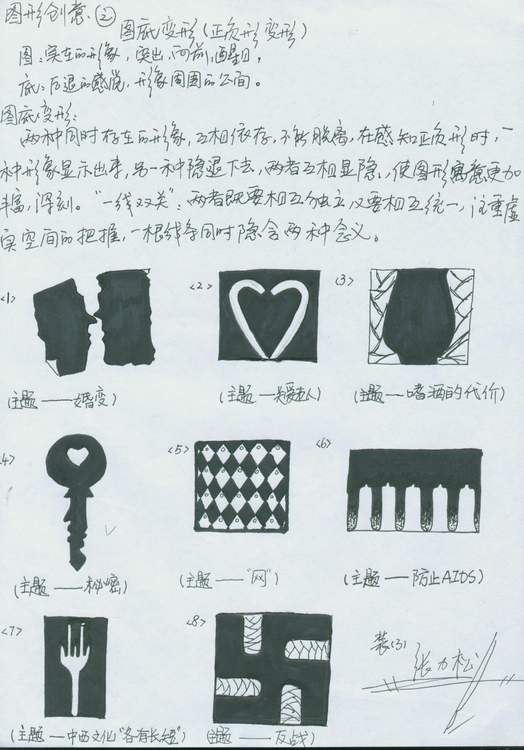 图形创意.②
图底变形(正负形变形)
图:实在的形象,突出、向前,醒目,
底:后退的感觉,形象周围的空间。
图底变形:
两种同时存在的形象,互相依存,不能脱离,在感知正负形时,一
种形象显示出来,另一种隐退下去,两者互相显隐,使图形寓意更加
丰富,深刻。"一线双关":两者既要相互独立,又要相互统一,注重虚
实空间的把握,一根线条同时隐含两种含义。
<1> <2> (3)
(主题——婚变) (主题—关爱老人) (主题——嗜酒的代价)
<4> <5> <6>
(主题——秘密) (主题——"网") (主题——防止AIDS)
<7> <8> 装(3) 张力松
(主题—中西文化"各有长短") (主题——反战)